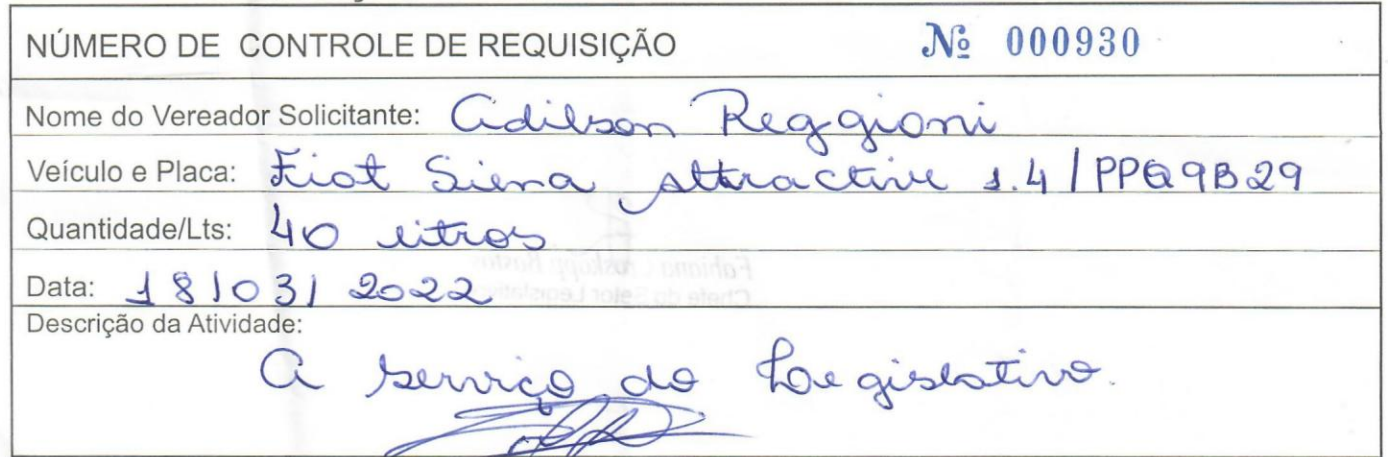 NÚMERO DE CONTROLE DE REQUISIÇÃO Nº 000930
Nome do Vereador Solicitante: Adilson Reggioni
Veículo e Placa: Fiat Siena Attractive 1.4 / PPQ9B29
Quantidade/Lts: 40 litros
Data: 18/03/2022
Descrição da Atividade:
A serviço do Legislativo.